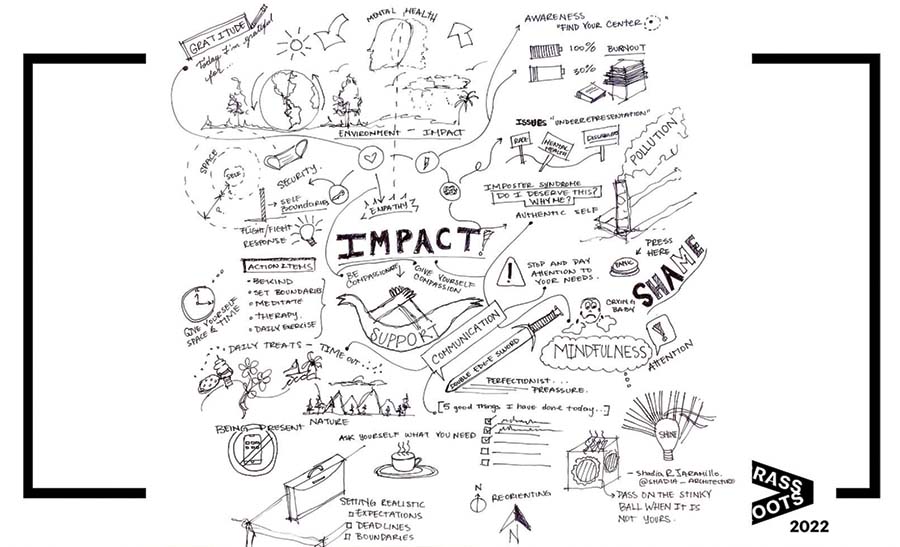 GRATITUDE
Today I'm grateful
for...
MENTAL HEALTH
ENVIRONMENT - IMPACT
AWARENESS
"FIND YOUR CENTER"
100% BURNOUT
30%
ISSUES "UNDERREPRESENTATION"
RACE
MENTAL
HEALTH
POLLUTION
SPACE
SELF
SECURITY
SELF
BOUNDARIES
FLIGHT/FIGHT
RESPONSE
EMPATHY
IMPOSTER SYNDROME
DO I DESERVE THIS?
WHY ME?
AUTHENTIC SELF
IMPACT!
PRESS
HERE
PANIC
SHAME
ACTION ITEMS
BE KIND
SET BOUNDARIES
MEDITATE
THERAPY
DAILY EXERCISE
BE
COMPASSIONATE
GIVE YOURSELF
COMPASSION
STOP AND PAY
ATTENTION TO
YOUR NEEDS.
SUPPORT
COMMUNICATION
DOUBLE EDGE SWORD
CRYING
BABY
MINDFULNESS
ATTENTION
GIVE YOURSELF
SPACE & TIME
DAILY TREATS - TIME OUT...
PERFECTIONIST...
PREASSURE.
[5 good things I have done today...]
NATURE
BEING PRESENT
ASK YOURSELF WHAT YOU NEED
SHINE
SETTING REALISTIC
EXPECTATIONS
DEADLINES
BOUNDARIES
N
REORIENTING
N
- Shadia R. Jaramillo.
@SHADIA_ARCHITECTURE
PASS ON THE STINKY
BALL WHEN IT IS
NOT YOURS.
RASS
OOTS
2022